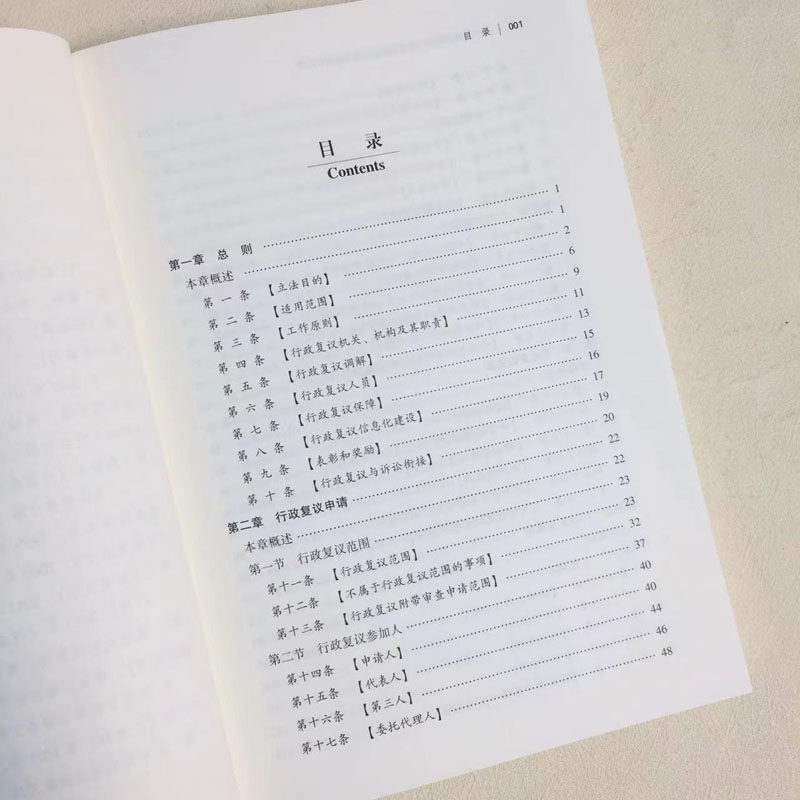 目 录 | 001
目 录
Contents
第一章 总 则 …… 1
本章概述 …… 1
第 一 条 【立法目的】 …… 2
第 二 条 【适用范围】 …… 6
第 三 条 【工作原则】 …… 9
第 四 条 【行政复议机关、机构及其职责】 …… 11
第 五 条 【行政复议调解】 …… 13
第 六 条 【行政复议人员】 …… 15
第 七 条 【行政复议保障】 …… 16
第 八 条 【行政复议信息化建设】 …… 17
第 九 条 【表彰和奖励】 …… 19
第 十 条 【行政复议与诉讼衔接】 …… 20
第二章 行政复议申请 …… 22
本章概述 …… 22
第一节 行政复议范围 …… 23
第十一条 【行政复议范围】 …… 23
第十二条 【不属于行政复议范围的事项】 …… 32
第十三条 【行政复议附带审查申请范围】 …… 37
第二节 行政复议参加人 …… 40
第十四条 【申请人】 …… 40
第十五条 【代表人】 …… 44
第十六条 【第三人】 …… 46
第十七条 【委托代理人】 …… 48